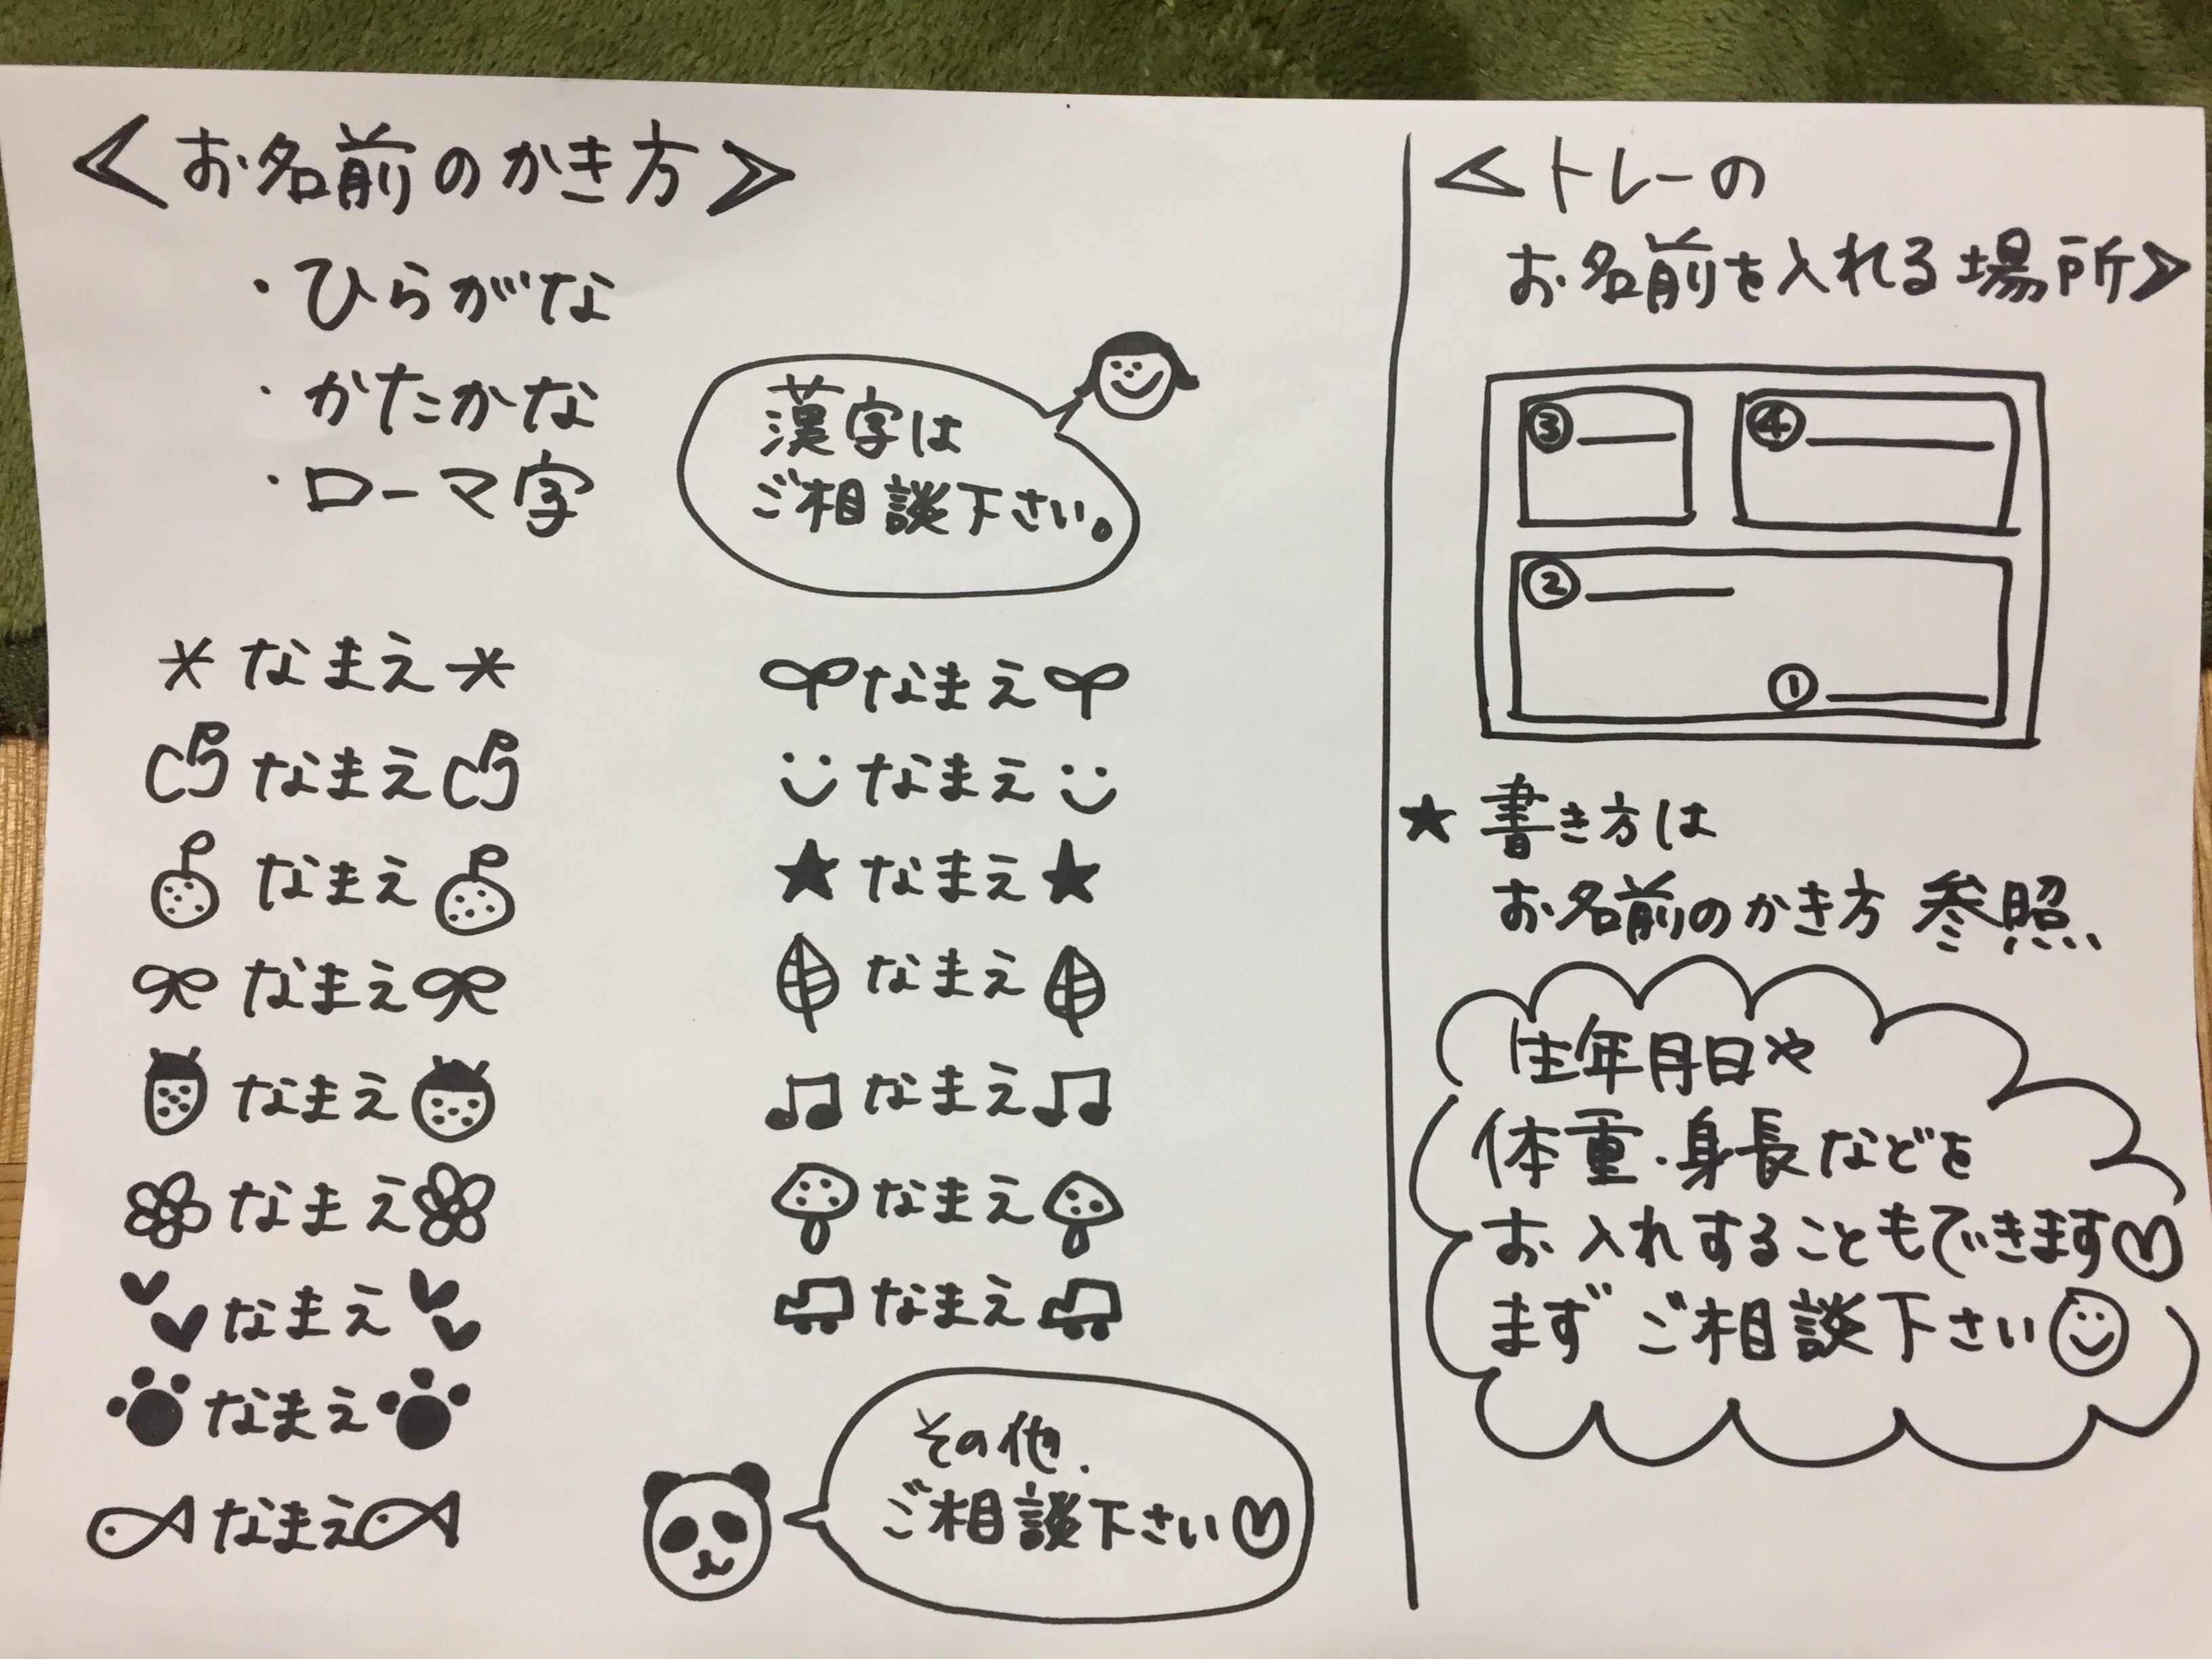 <お名前のかき方>
・ひらがな
・かたかな
・ローマ字
漢字は
ご相談下さい。
*なまえ*
なまえ
なまえ
なまえ
なまえ
なまえ
なまえ
なまえ
なまえ
なまえ
なまえ
★なまえ★
なまえ
♫なまえ♫
なまえ
なまえ
その他.
ご相談下さい♡
<トレーの
お名前を入れる場所>
③
④
②
①
★書き方は
お名前のかき方 参照
生年月日や
体重・身長などを
お入れすることもできます♡
まずご相談下さい☺